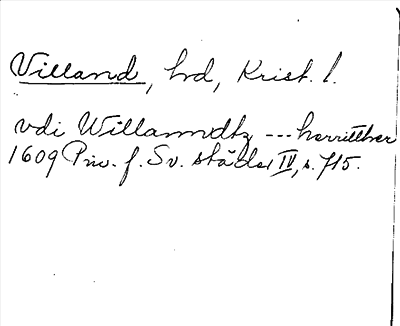 Villand, hd, Krist. l.
vdi Willanndtz --- herritther
1609 Priv. f. Sv. städer IV, s. 715.